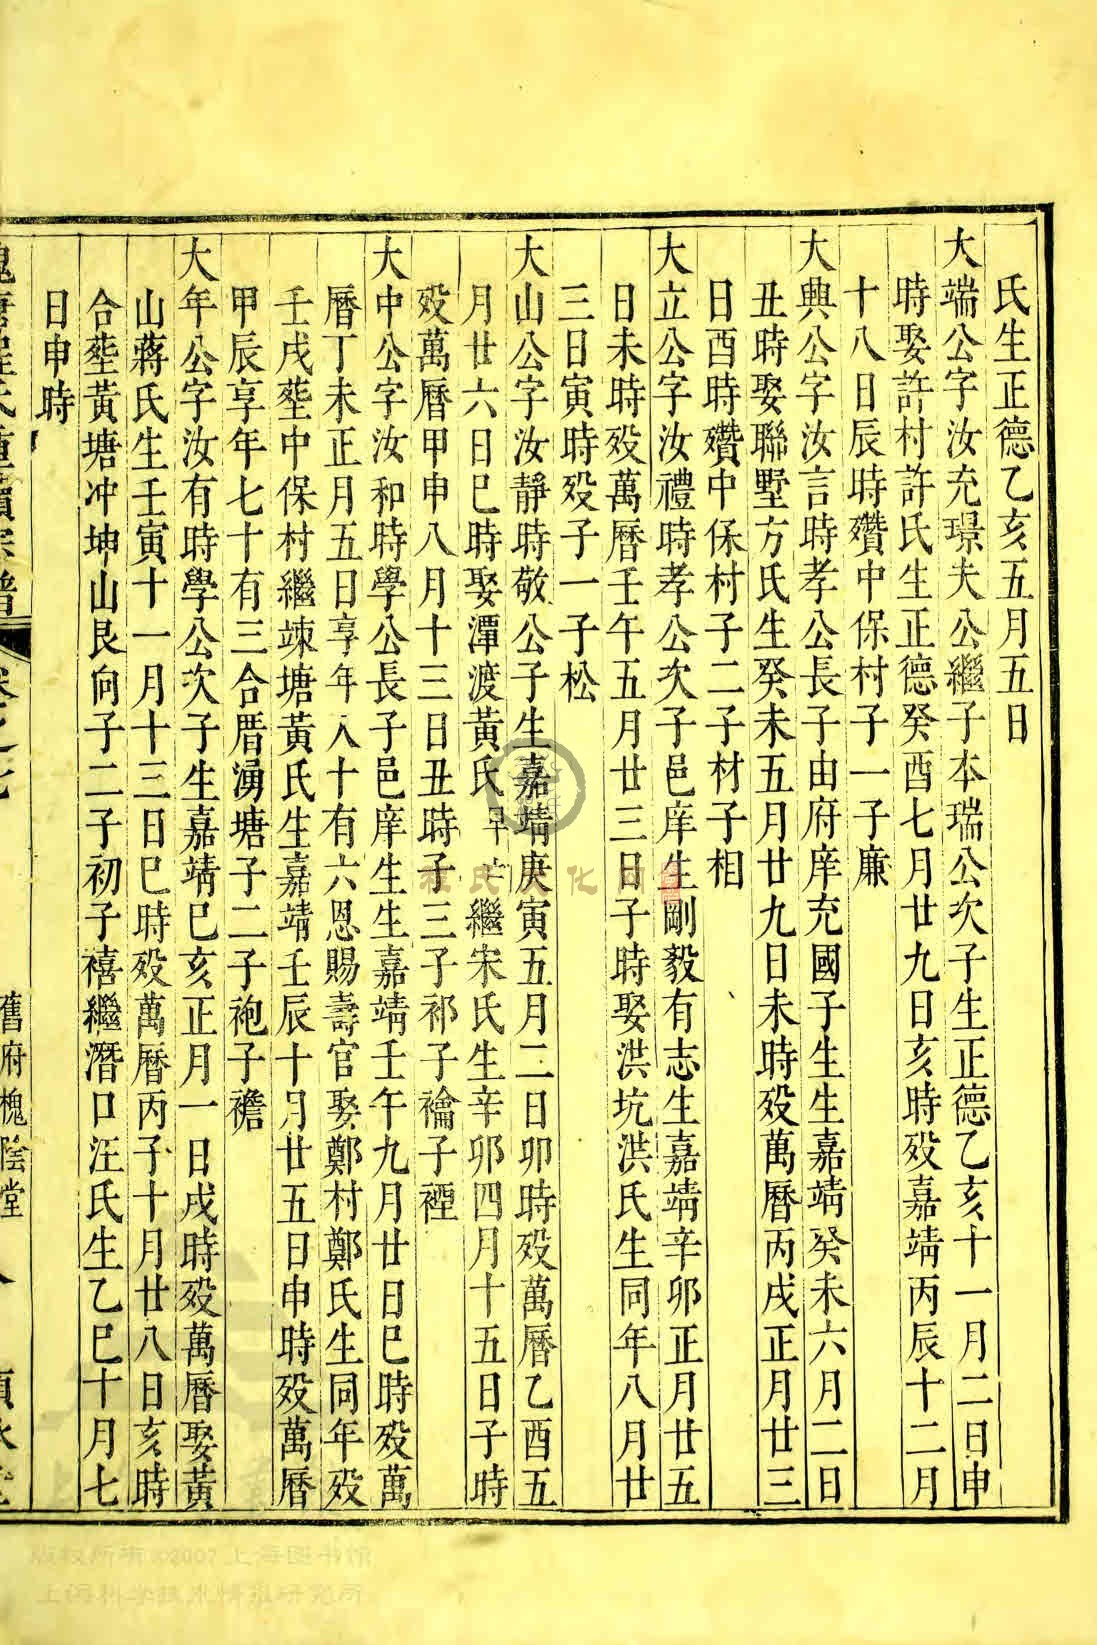 氏生正德乙亥五月五日
大端公字汝充璟夫公繼子本瑞公次子生正德乙亥十一月二日申
時娶許村許氏生正德癸酉七月廿九日亥時歿嘉靖丙辰十二月
十八日辰時殯中保村子一子廉
大興公字汝言時孝公長子由府庠充國子生生嘉靖癸未六月二日
丑時娶聯墅方氏生癸未五月廿九日未時歿萬曆丙戌正月廿三
日酉時殯中保村子二子材子相
大立公字汝禮時孝公次子邑庠生剛毅有志生嘉靖辛卯正月廿五
日未時歿萬曆壬午五月廿三日子時娶洪坑洪氏生同年八月廿
三日寅時歿子一子松
大山公字汝靜時敬公子生嘉靖庚寅五月二日卯時歿萬曆乙酉五
月廿六日巳時娶潭渡黃氏早 繼宋氏生辛卯四月十五日子時
歿萬曆甲申八月十三日丑時子三子祁子襘子禋
大中公字汝和時學公長子邑庠生生嘉靖壬午九月廿日巳時歿萬
曆丁未正月五日享年八十有六恩賜壽官娶鄭村鄭氏生同年歿
壬戌塟中保村繼竦塘黃氏生嘉靖壬辰十月廿五日申時歿萬曆
甲辰享年七十有三合厝湧塘子二子袍子襜
大年公字汝有時學公次子生嘉靖巳亥正月一日戌時歿萬曆娶黃
山蔣氏生壬寅十一月十三日巳時歿萬曆丙子十月廿八日亥時
合塟黃塘冲坤山艮向子二子初子禧繼潛口汪氏生乙巳十月七
日申時
程氏重續宗譜 卷之七 舊府槐陰堂
程氏文化网
版权所有©2007上海图书馆
上海科学技术情报研究所